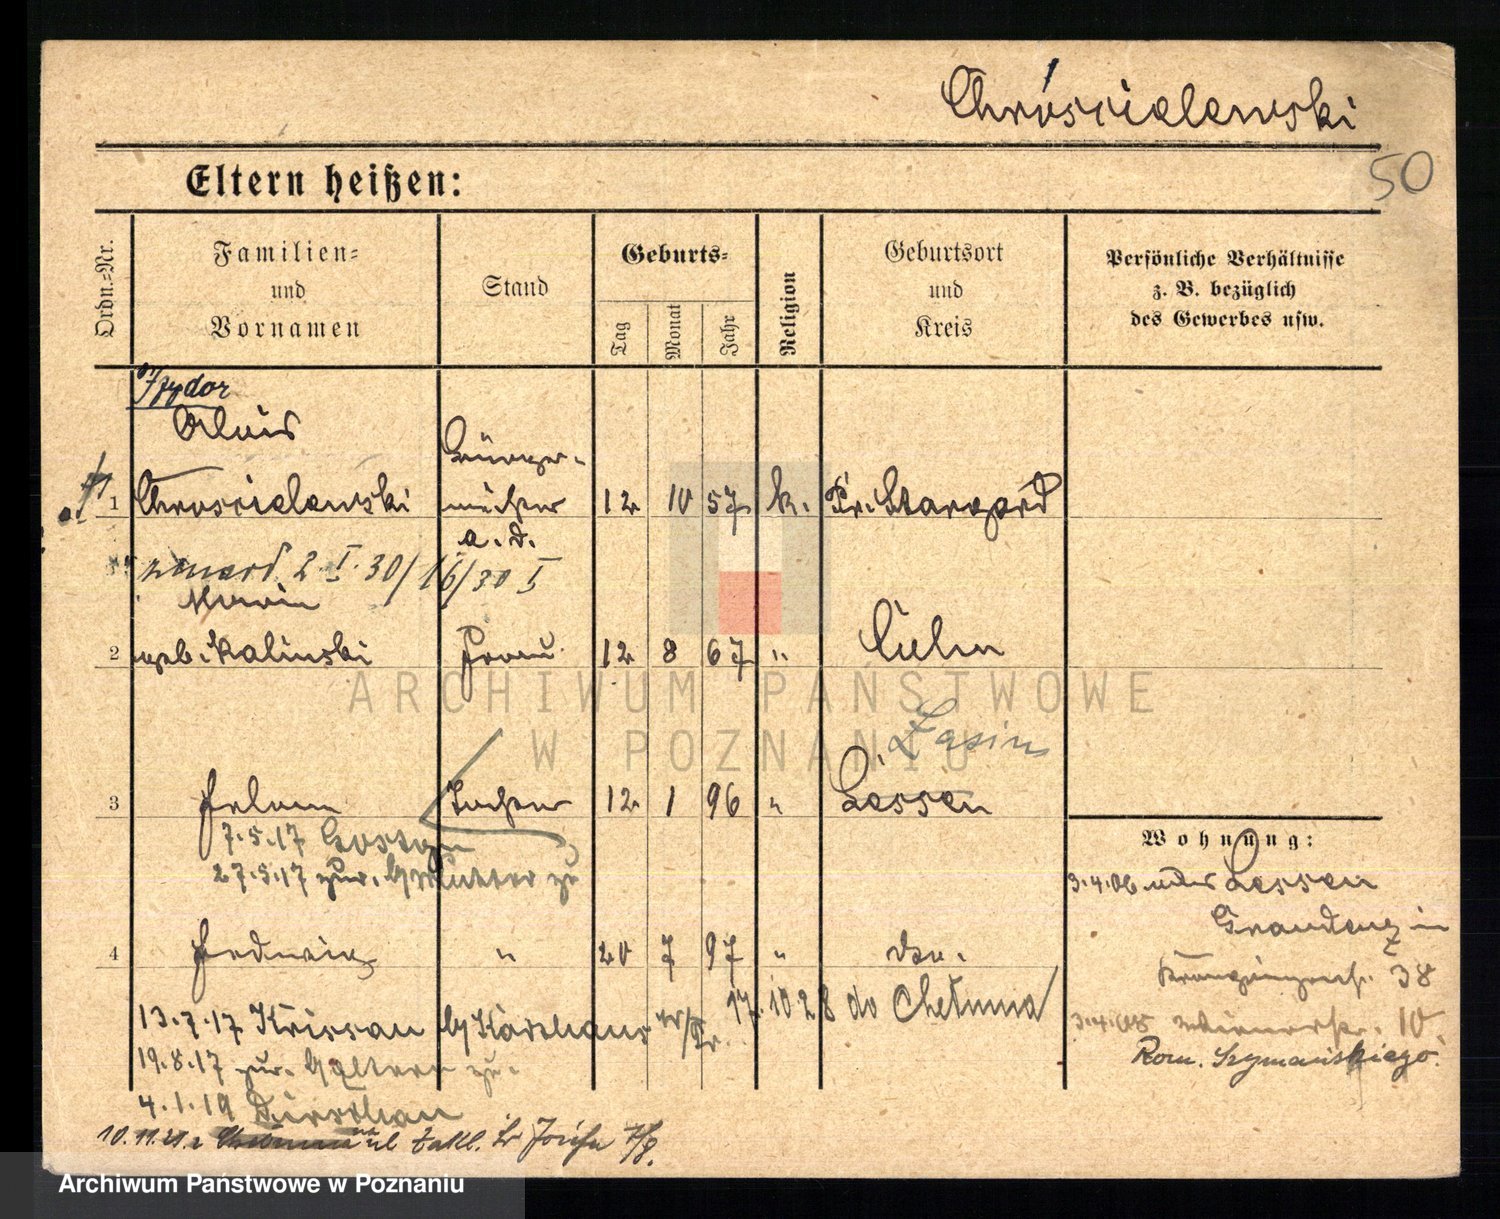 Chróscielewski
50
Eltern heißen:
Ordn.-Nr.
Familien-
und
Vornamen
Stand
Geburts-
Tag
Monat
Jahr
Religion
Geburtsort
und
Kreis
Persönliche Verhältnisse
z. B. bezüglich
des Gewerbes usw.
Izydor
Alois
Bürger-
1 Chroscielewski meister 12 10 57 k. Pr. Stargard
a. D.
zmarł 2. I. 30/16/30 I
Maria
2 geb. Kalinski Frau 12 8 67 " Culm
ARCHIWUM PAŃSTWOWE
W POZNANIU
Łasin
3 Helene Tochter 12 1 96 " Lessen
7.5.17 Gostyn
27.5.17 zur. Mutter zu
Wohnung:
3.4.06 Lessen
Graudenz in
38
4 Hedwig " 20 7 97 " do.
17.10 28 do Chełmna
13.7.17 Krissau b/Karthaus W/Pr.
3.4.08 10
19.8.17 zur. Eltern zu.
Rom. Szymańskiego
4.1.19 Dirschau
10.11.21 z zakł. Św Józefa
Archiwum Państwowe w Poznaniu